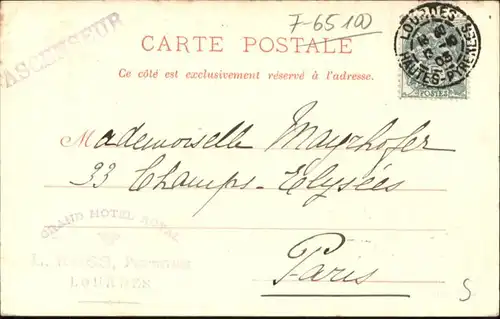 F-65100
ASCENSEUR
CARTE POSTALE
Ce côté est exclusivement réservé à l'adresse.
LOURDES
HAUTES-PYR
POSTES
Mademoiselle Mayrhofer
33 Champs-Elysées
Paris
GRAND HOTEL ROYAL
L.
LOURDES
S